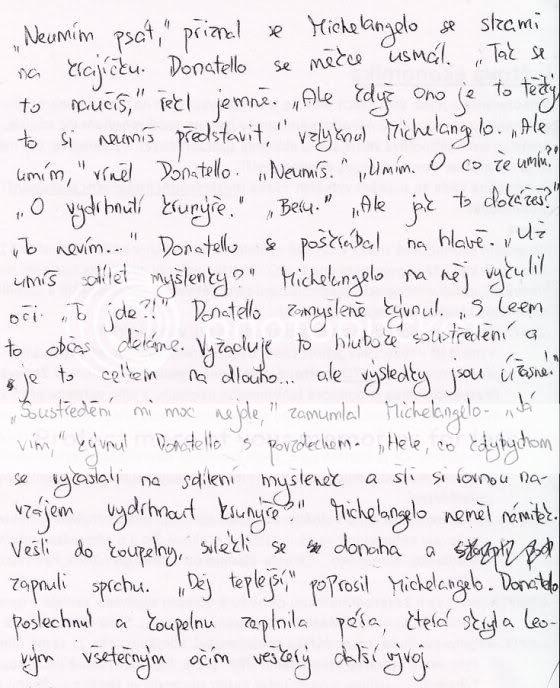 „Neumím psát,“ přiznal se Michelangelo se slzami
na krajíčku. Donatello se měkce usmál. „Tak se
to naučíš,“ řekl jemně. „Ale když ono je to těžký
to si neumíš představit,“ vzlyknul Michelangelo. „Ale
umím,“ vrněl Donatello. „Neumíš.“ „Umím. O co že umím?“
„O vydrhnutí krunýře.“ „Beru.“ „Ale jak to dokážeš?“
„To nevím...“ Donatello se poškrábal na hlavě. „Už
umíš sdílet myšlenky?“ Michelangelo na něj vykulil
oči. „To jde?!“ Donatello zamyšleně kývnul. „S Leem
to občas děláme. Vyžaduje to hluboké soustředění a
je to celkem na dlouho... ale výsledky jsou úžasné.“
„Soustředění mi moc nejde,“ zamumlal Michelangelo. „Já
vím,“ kývnul Donatello s povzdechem. „Hele, co kdybychom
se vykašlali na sdílení myšlenek a šli si rovnou na-
vzájem vydrhnout krunýře?“ Michelangelo neměl námitek.
Vešli do koupelny, svlékli se donaha a
zapnuli sprchu. „Dej teplejší,“ poprosil Michelangelo. Donatello
poslechnul a koupelnu zaplnila pára, která skryla Leo-
vým všetečným očím veškerý další vývoj.